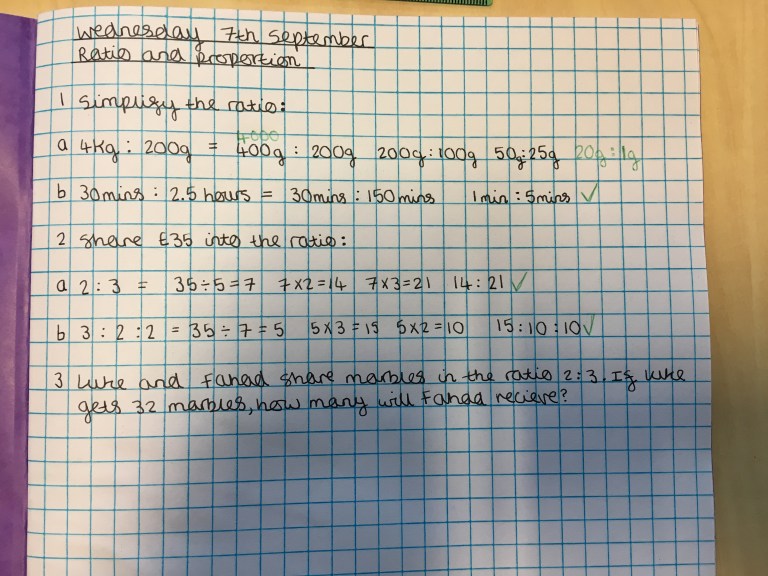 Wednesday 7th September
Ratio and proportion
1 Simplify the ratio:
4000
a 4kg : 200g = 400g : 200g 200g : 100g 50g : 25g 20g : 1g
b 30mins : 2.5 hours = 30mins : 150mins 1min : 5mins ✓
2 Share £35 into the ratio:
a 2 : 3 = 35÷5=7 7×2=14 7×3=21 14 : 21 ✓
b 3 : 2 : 2 = 35÷7=5 5×3=15 5×2=10 15 : 10 : 10 ✓
3 Luke and Fahad share marbles in the ratio 2:3. If Luke
gets 32 marbles, how many will Fahad recieve?